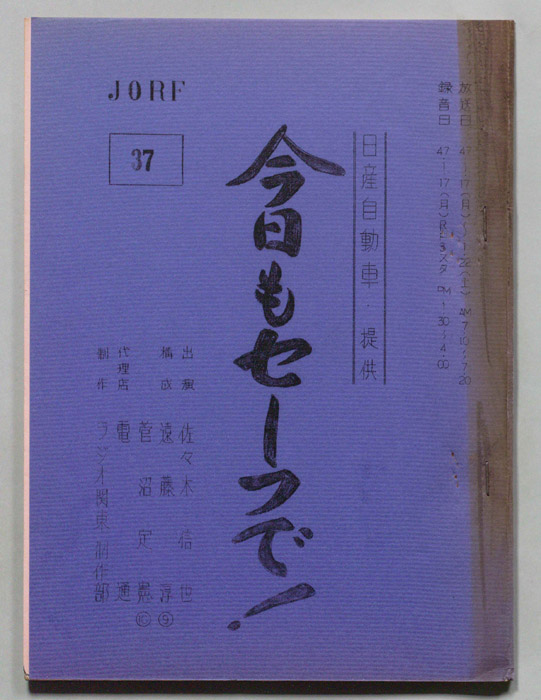 放送日 47-1-17(月)~1-22(土) AM 7.10~7.20
録音日 47-1-17(月) Rスタ PM 1.30~4.00
日産自動車・提供
今日もセーフで!
JORF
37
出演 佐々木信世
構成 遠藤淳⑨
菅沼定憲⑩
代理店 電通
制作 ラジオ関東制作部